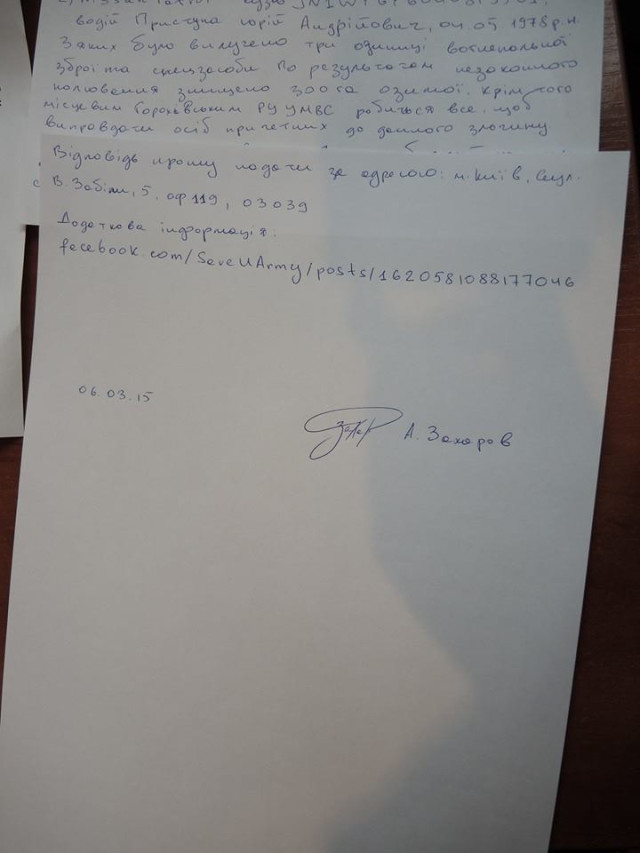 водій Приступа Юрій Андрійович, 04.05.1978р.н
В них було вилучено три одиниці вогнепальної
зброї та спецзасоби. По результатам незаконного
полювання знищено 300 га озимої. Крім того
місцевим Горохівським РУ УМВС робиться все, щоб
виправдати осіб причетних до даного злочину
Відповідь прошу подати за адресою: м. Київ,
В. Забіли, 5. ар 119, 03039
Додаткова інформація:
facebook.com/SaveUArmy/posts/1620581088177046
06.03.15
А. Захаров